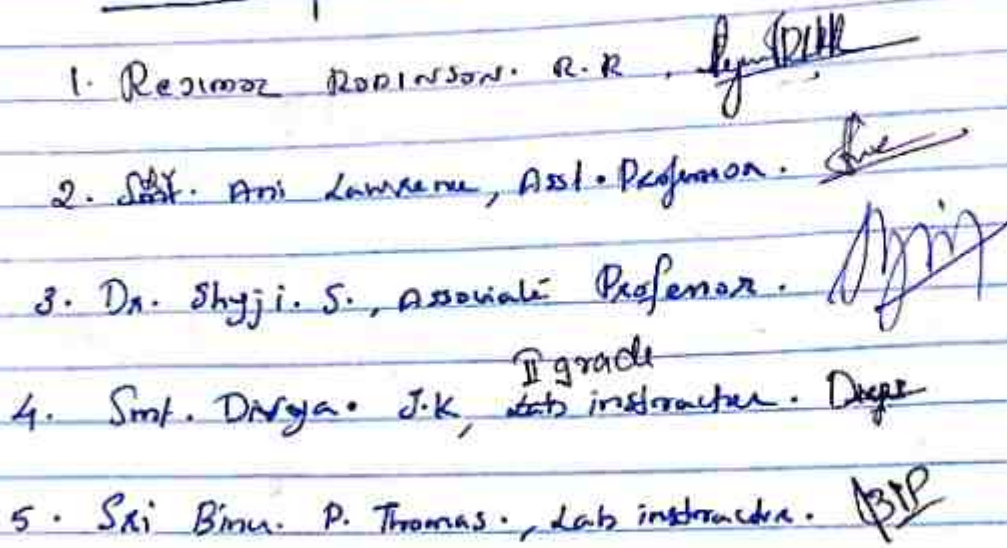 1. Rejimol Robinson. R.R,
2. Smt. Ani Lawrence, Asst. Professor.
3. Dr. Shyji. S., Associate Professor.
II grade
4. Smt. Divya. J.K, Lab instructor. Divya
5. Sri Binu. P. Thomas., Lab instructor.